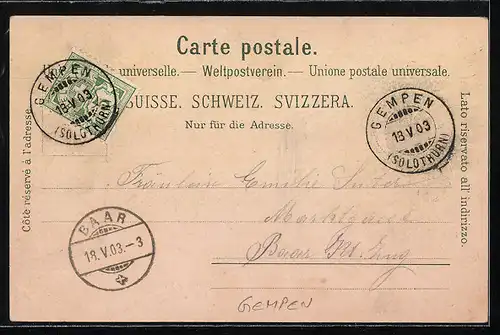 Carte postale.
universelle. — Weltpostverein. — Unione postale universale.
SUISSE. SCHWEIZ. SVIZZERA.
Nur für die Adresse.
Côté réservé à l'adresse.
Lato riservato all' indirizzo.
GEMPEN
18 V 03
(SOLOTHURN)
GEMPEN
18 V 03
(SOLOTHURN)
Fräulein Emilie Suter
Marktgasse
Baar Kt. Zug
BAAR
18.V.03.-3
GEMPEN